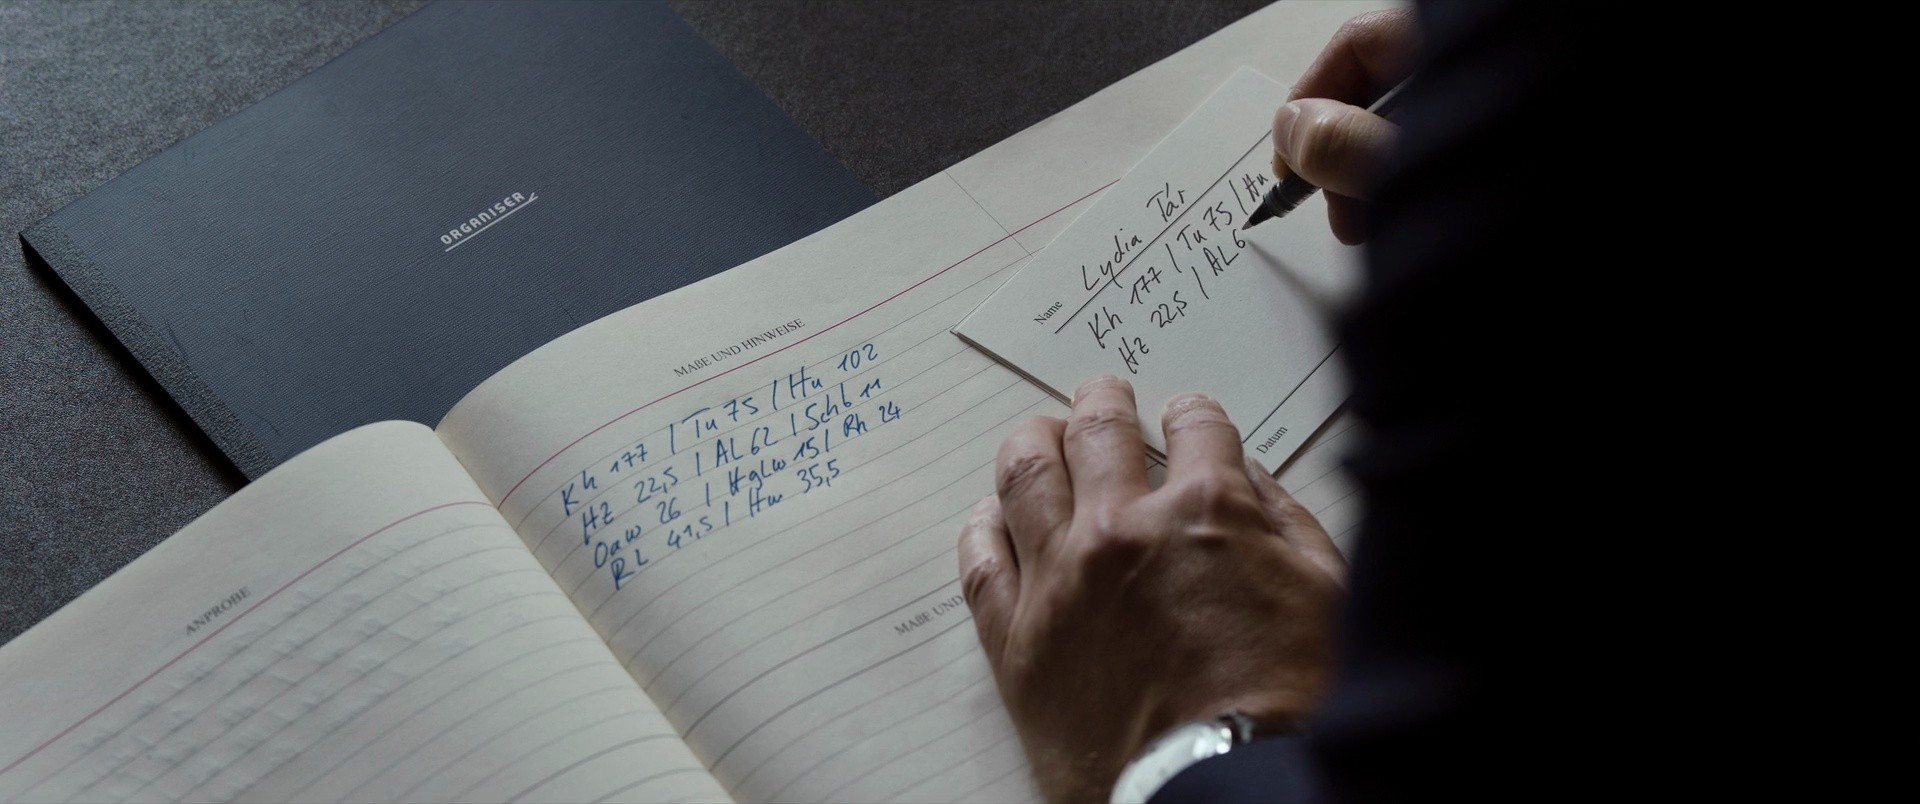 ORGANISER
ANPROBE
MAßE UND HINWEISE
Kh 177 / Tu 75 / Hu 102
Hz 22,5 / AL 62 / Schb 11
Oaw 26 / HgLw 151 Rh 24
RL 41,5 / Hw 35,5
MAßE UND
Name Lydia Tár
Kh 177 / Tu 75 / Hu
Hz 22,5 / AL 6
Datum